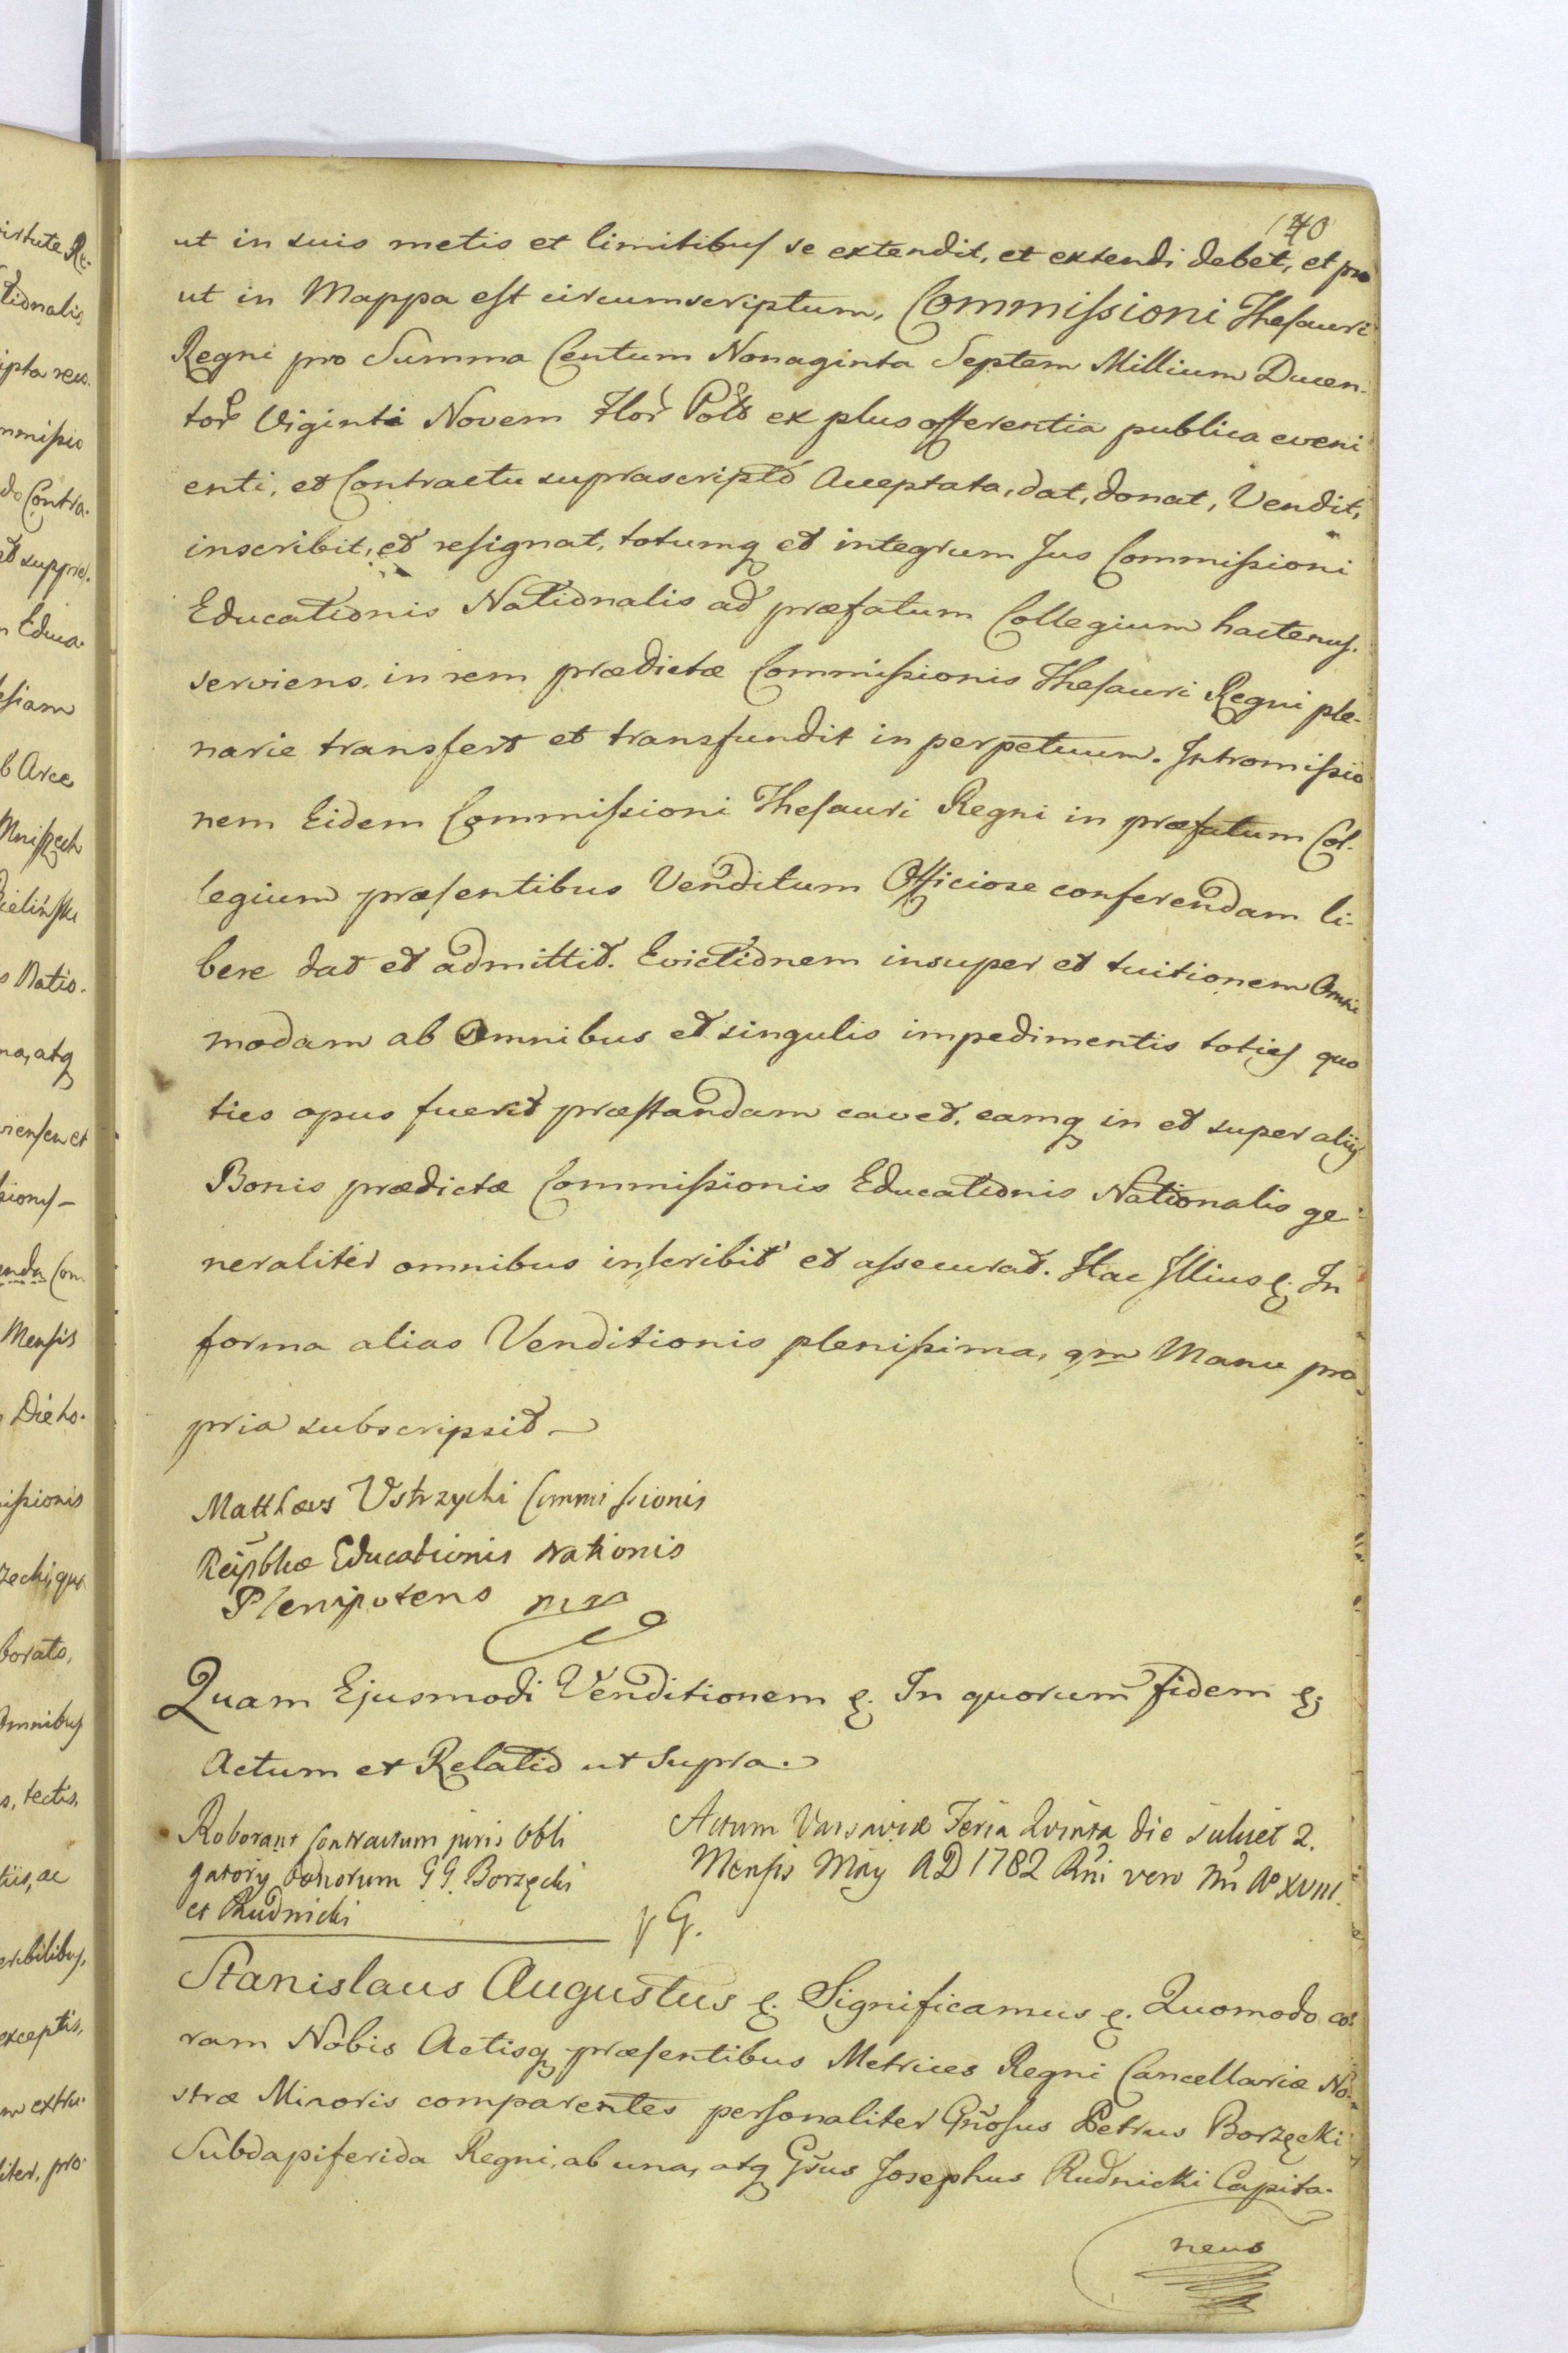 140
ut in suis metis et limitibus se extendit, et extendi debet, et pro
ut in Mappa est circumscriptum, Commissioni Thesauri
Regni pro Summa Centum Nonaginta Septem Millium Ducen-
tor Viginti Novem Flor Pol ex plus offerentia publica eveni
enti, et Contractu suprascripto Acceptata, dat, donat, Vendit,
inscribit, et resignat, totumq et integrum Jus Commissioni
Educationis Nationalis ad præfatum Collegium hactenus
serviens in rem prædictæ Commissionis Thesauri Regni ple-
narie transfert et transfundit in perpetuum. Intromissio
nem Eidem Commissioni Thesauri Regni in præfatum Col-
legium præsentibus Venditum Officiose conferendam li-
bere dat et admittit. Evictionem insuper et tuitionem Omni
modam ab Omnibus et singulis impedimentis toties quo
ties opus fuerit præstandam cavet, eamq in et super alijs
Bonis prædictæ Commissionis Educationis Nationalis ge-
neraliter omnibus inscribit et assecurat. Hac Illius &. In
forma alias Venditionis plenissima, qm Manu pro
pria subscripsit —
Matthæus Ustrzycki Commissionis
Reipblcæ Educationis Nationis
Plenipotens mp
Quam Ejusmodi Venditionem &. In quorum fidem &
Actum et Relatio ut Supra.
Roborant Contractum juris obli
gatorij Bonorum GG. Borzęcki
et Rudnicki
Actum Varsaviæ Feria Quinta die sciliet 2.
Mensis Maij AD 1782 Rni vero Nri Ao XVIII.
Stanislaus Augustus &. Significamus &. Quomodo co-
ram Nobis Actisq præsentibus Metrices Regni Cancellariæ No-
stræ Minoris comparentes personaliter Gnosus Petrus Borzęcki
Subdapiferida Regni, ab una, atq Gsus Josephus Rudnicki Capita-
neus